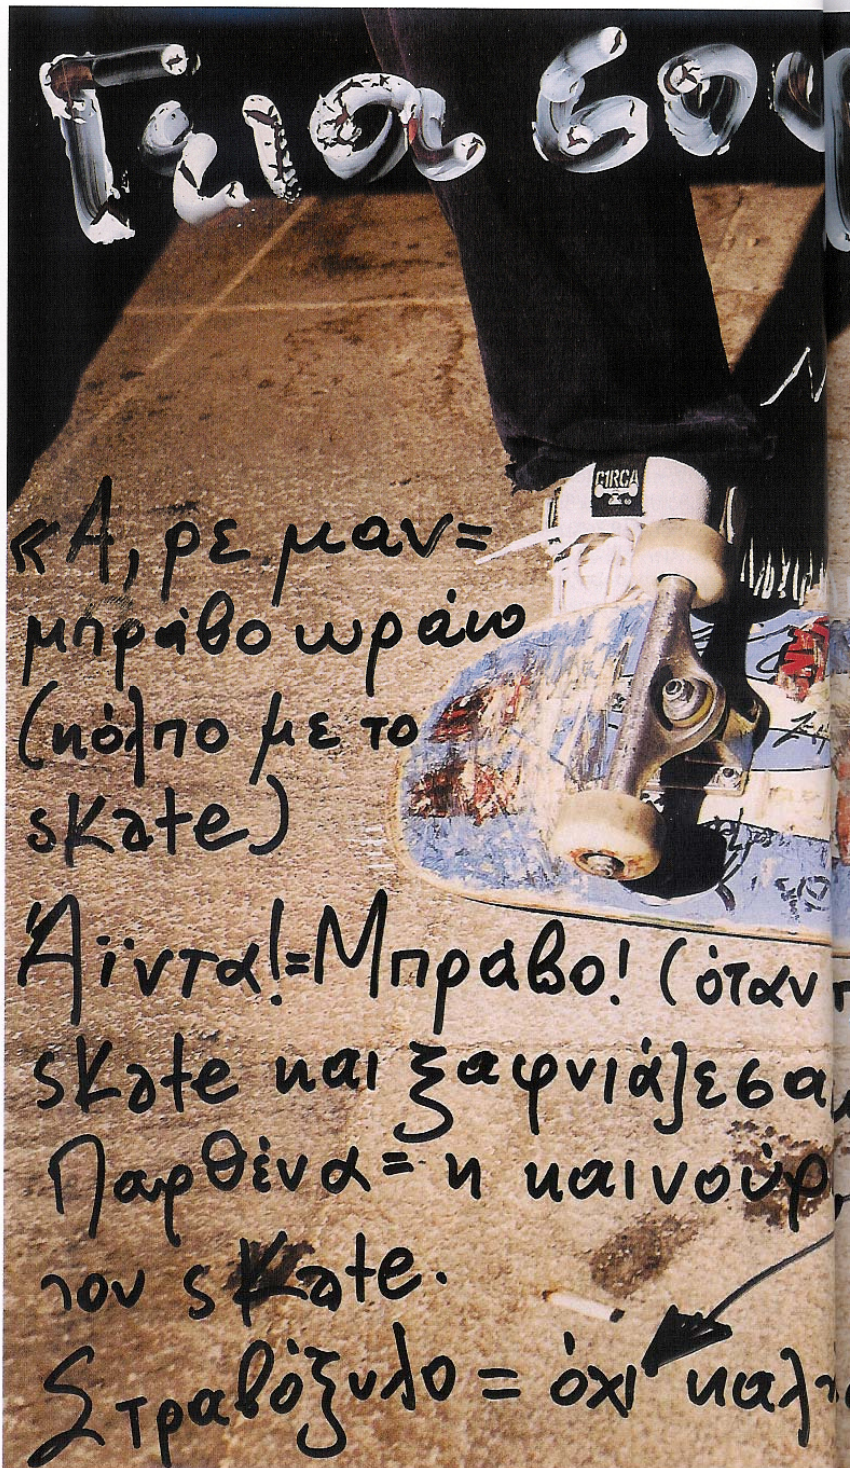 Γεια σου
CIRCA
«Α, ρε μαν=
μπράβο ωραίο
(κόλπο με το
skate)
Άιντα!=Μπράβο! (όταν
skate και ξαφνιάζεσαι
Παρθένα= η καινούρ
του skate.
Στραβόξυλο = όχι καλ